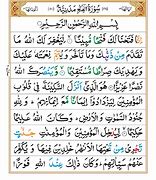 سُورَةُ الْفَتْحِ مَدَنِيَّةٌ
بِسْمِ اللهِ الرَّحْمٰنِ الرَّحِيْمِ
اِنَّا فَتَحْنَا لَكَ فَتْحًا مُّبِيْنًا لِّيَغْفِرَ لَكَ اللهُ مَا
تَقَدَّمَ مِنْ ذَنْۢبِكَ وَمَا تَاَخَّرَ وَيُتِمَّ نِعْمَتَهٗ عَلَيْكَ
وَيَهْدِيَكَ صِرَاطًا مُّسْتَقِيْمًا وَّيَنْصُرَكَ اللهُ
نَصْرًا عَزِيْزًا هُوَ الَّذِيْٓ اَنْزَلَ السَّكِيْنَةَ فِيْ
قُلُوْبِ الْمُؤْمِنِيْنَ لِيَزْدَادُوْٓا اِيْمَانًا مَّعَ اِيْمَانِهِمْ
وَلِلّٰهِ جُنُوْدُ السَّمٰوٰتِ وَالْاَرْضِ وَكَانَ اللهُ
عَلِيْمًا حَكِيْمًا لِّيُدْخِلَ الْمُؤْمِنِيْنَ وَالْمُؤْمِنٰتِ جَنّٰتٍ
تَجْرِيْ مِنْ تَحْتِهَا الْاَنْهٰرُ خٰلِدِيْنَ فِيْهَا وَيُكَفِّرَ
عَنْهُمْ سَيِّاٰتِهِمْ وَكَانَ ذٰلِكَ عِنْدَ اللهِ